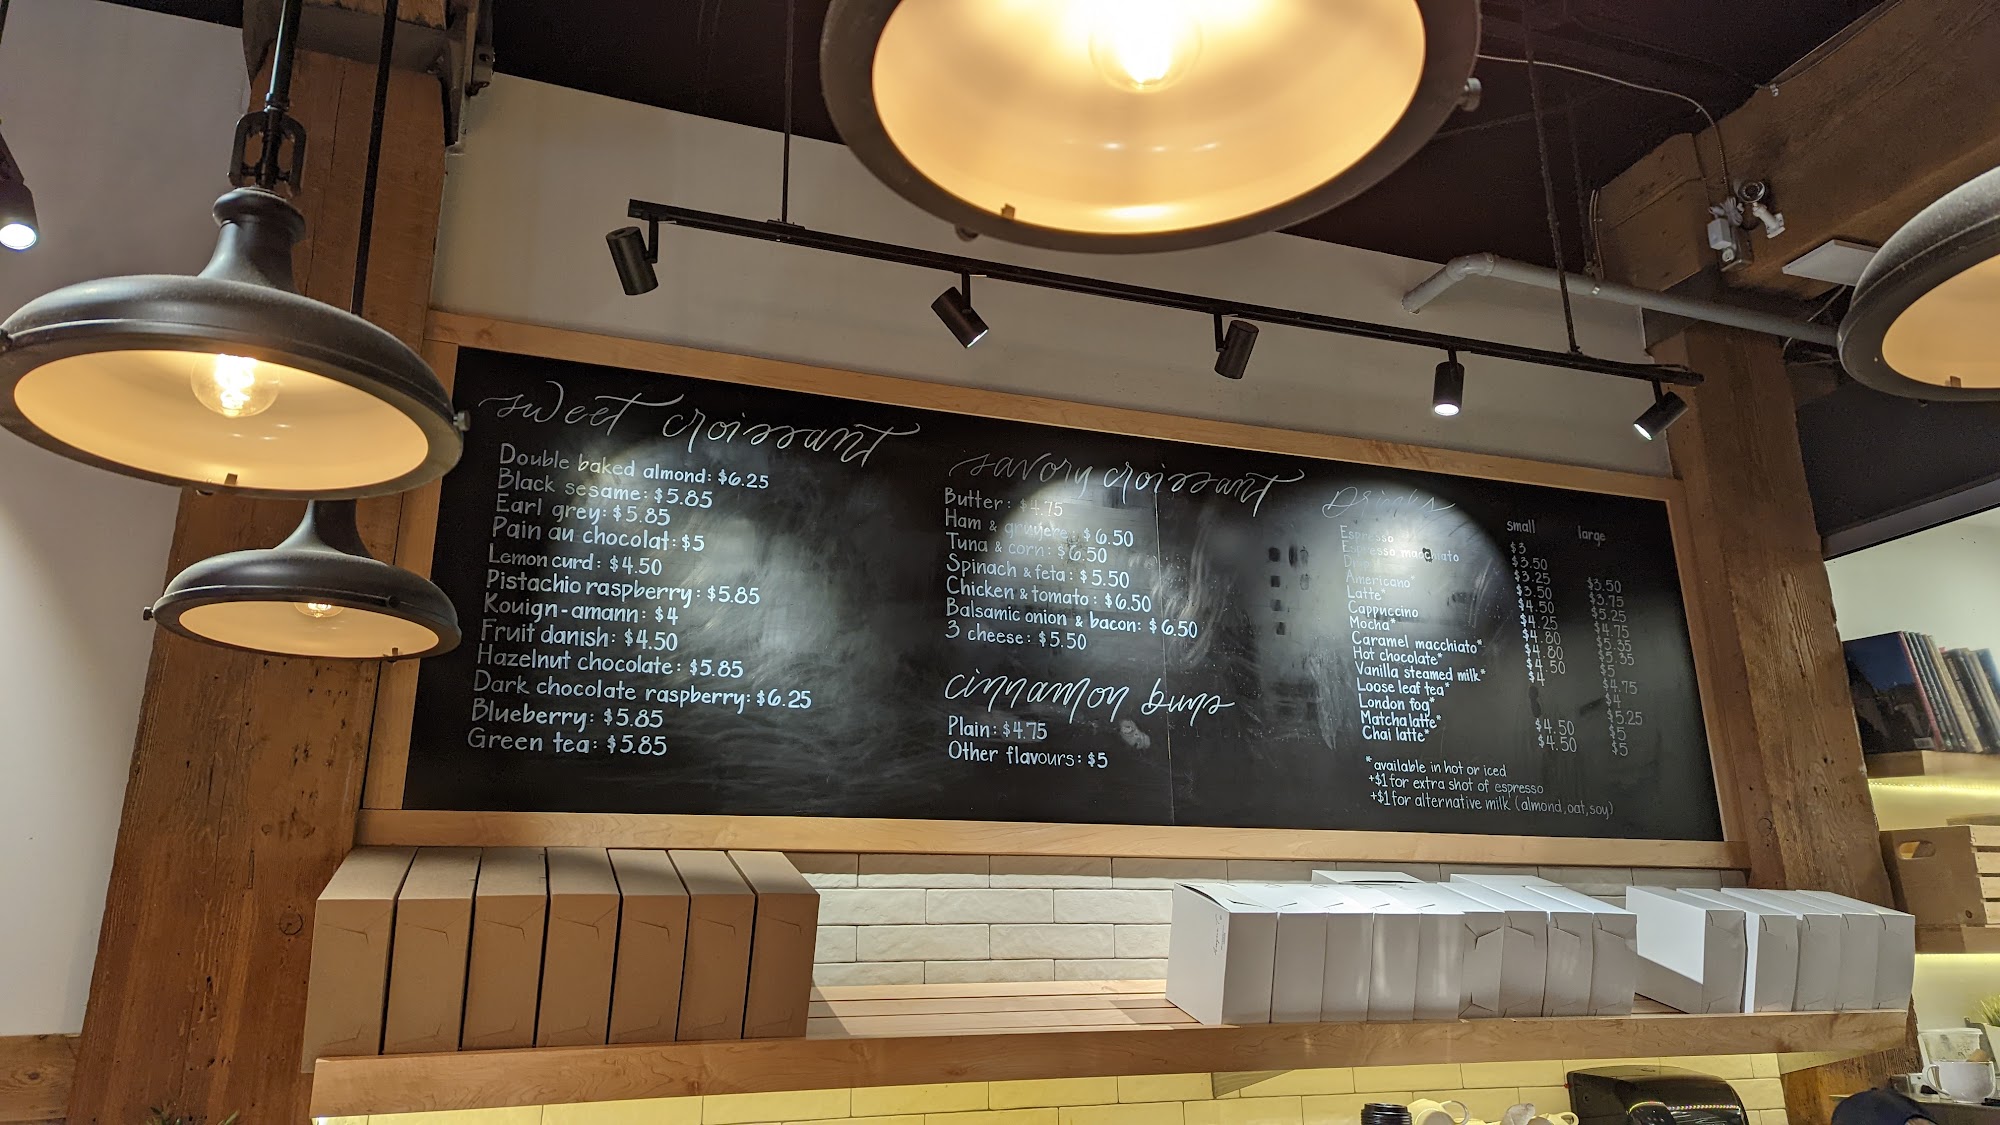 sweet croissant
Double baked almond: $6.25
Black sesame: $5.85
Earl grey: $5.85
Pain au chocolat: $5
Lemon curd: $4.50
Pistachio raspberry: $5.85
Kouign-amann: $4
Fruit danish: $4.50
Hazelnut chocolate: $5.85
Dark chocolate raspberry: $6.25
Blueberry: $5.85
Green tea: $5.85
savory croissant
Butter: $4.75
Ham & gruyere: $6.50
Tuna & corn: $6.50
Spinach & feta: $5.50
Chicken & tomato: $6.50
Balsamic onion & bacon: $6.50
3 cheese: $5.50
cinnamon buns
Plain: $4.75
Other flavours: $5
Drinks
small large
Espresso
Espresso macchiato
Americano*
Latte*
Cappuccino
Mocha*
Caramel macchiato*
Hot chocolate*
Vanilla steamed milk*
Loose leaf tea*
London fog*
Matcha latte*
Chai latte*
$3
$3.50
$3.25
$3.50
$4.50
$4.25
$4.80
$4.80
$4.50
$4
$4.50
$4.50
$3.50
$3.75
$5.25
$4.75
$5.35
$5.35
$5
$4.75
$4
$5.25
$5
$5
*available in hot or iced
+$1 for extra shot of espresso
+$1 for alternative milk (almond, oat, soy)